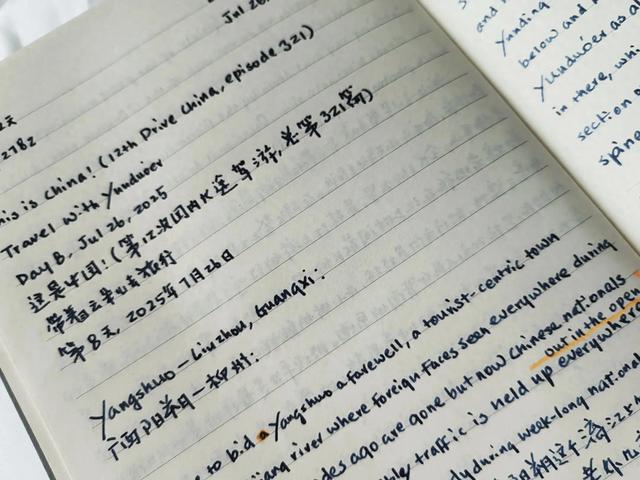 Jul 26,
天
2782
his is China! (12th Drive China, episode 321)
Travel with Yunduoer
Day 8, Jul 26, 2025
这是中国! (第12次国内长途驾游,总第321篇)
带着云朵去旅行
第8天, 2025年7月26日
Yangshuo — Liuzhou, Guangxi:
广西阳朔—柳州:
to bid a Yangshuo a farewell, a tourist-centric town
jiang river where foreign faces seen everywhere during
des ago are gone but now Chinese nationals
out in the open
traffic is held up everywhere
dy during week-long national
阳朔这个
and
Yunding
below and
Yunduoer as a
in there, whi
section o
spine